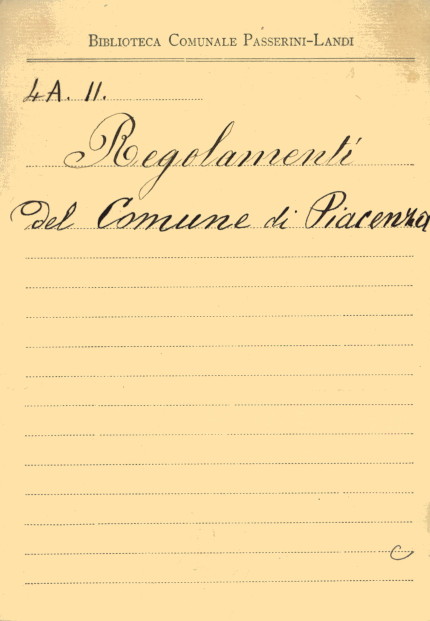 Biblioteca Comunale Passerini-Landi
4A. II.
Regolamenti
del Comune di Piacenza